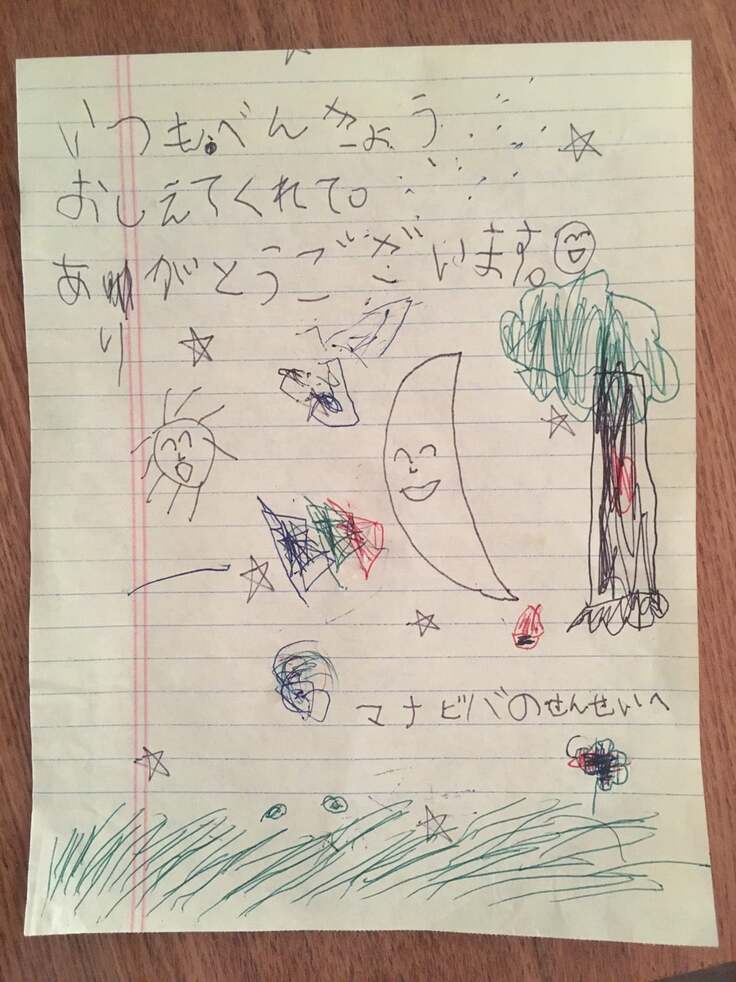 いつもべんきょう
おしえてくれて。
ありがとうございます。
マナビバのせんせいへ